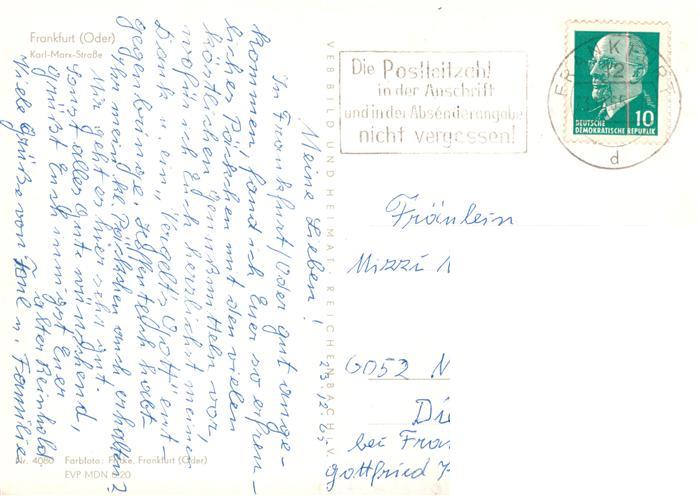 Frankfurt (Oder)
Karl-Marx-Straße
Meine Lieben!
In Frankfurt/Oder gut ange-
kommen, fand ich Euer so erfreu-
liches Päckchen mit den vielen
köstlichen Genußmitteln vor,
wofür ich Euch herzlichst meinen
Dank u. ein „Vergelt's Gott" ent-
gegenbringe. Hoffentlich habt
Ihr meine Päckchen auch erhalten?
Mir geht es hier sehr gut.
Sonst alles Gute wünschend,
grüßt Euch innigst Euer
alter Reinhold
Viele Grüße von Paul u. Familie
Nr. 4080 Farbfoto: Frankfurt (Oder)
EVP MDN 0.20
VEB BILD UND HEIMAT · REICHENBACH I. V.
23.12.65
Die Postleitzahl
in der Anschrift
und in der Absenderangabe
nicht vergessen!
FRANKFURT
d
DEUTSCHE
DEMOKRATISCHE REPUBLIK
10
Fräulein
Mizzi
6052
bei
Gottfried